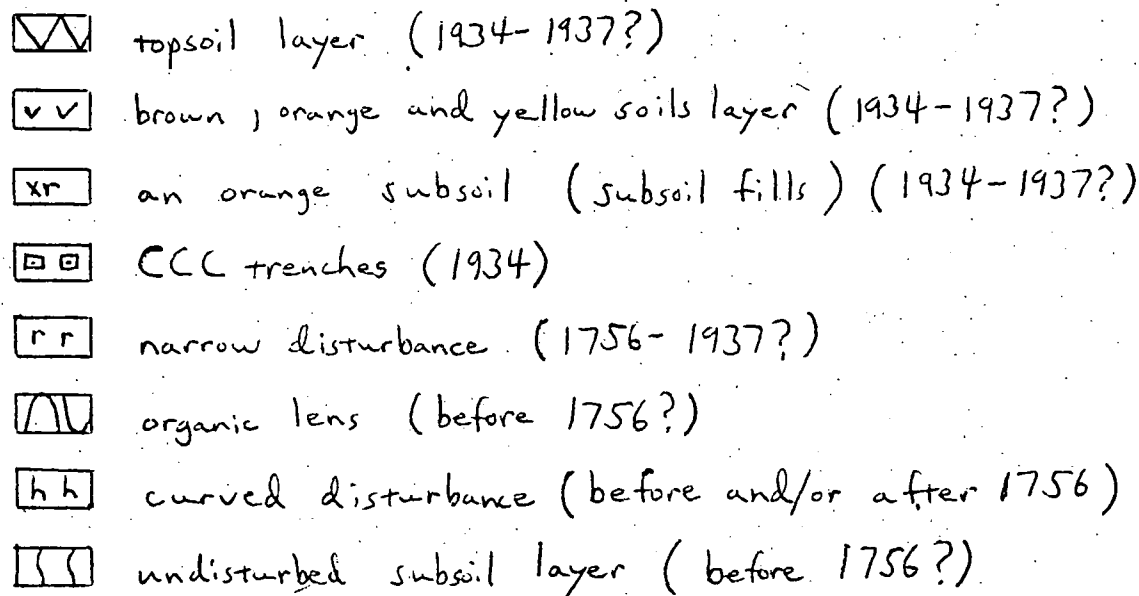 topsoil layer (1934-1937?)
v v brown, orange and yellow soils layer (1934-1937?)
xr an orange subsoil (subsoil fills) (1934-1937?)
CCC trenches (1934)
r r narrow disturbance (1756-1937?)
organic lens (before 1756?)
h h curved disturbance (before and/or after 1756)
undisturbed subsoil layer (before 1756?)